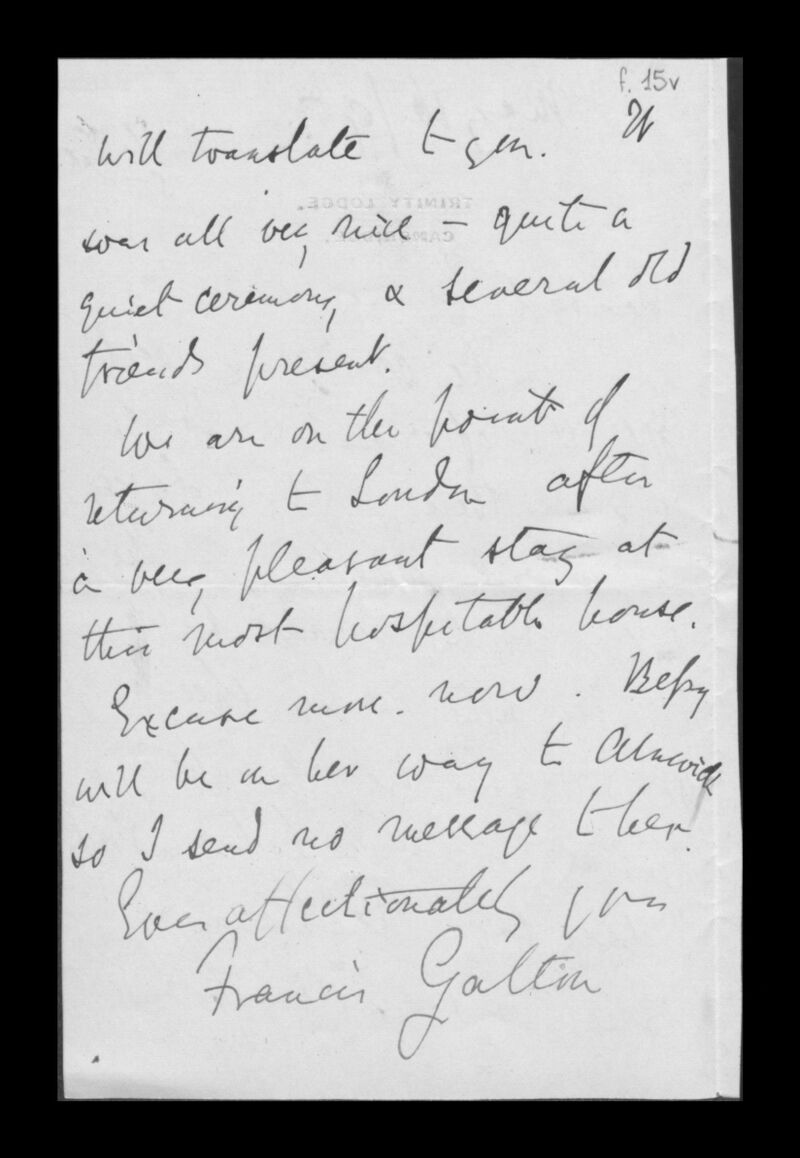 f. 15v
will translate to you. It
was all very nice – quite a
quiet ceremony, & several old
friends present.
We are on the point of
returning to London after
a very pleasant stay at
this most hospitable house.
Excuse more now. Bessy
will be on her way to Alnwick
so I send no message to her.
Ever affectionately yours
Francis Galton
TRINITY LODGE.
CAMBRIDGE.